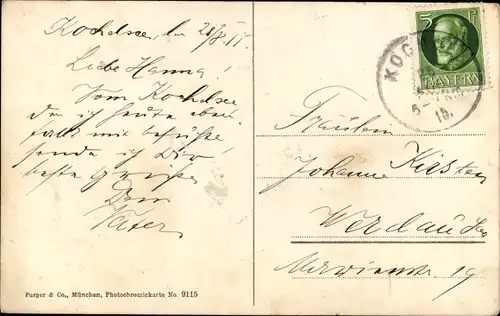 Kochelsee, den 28/8. 15.
Liebe Hanna!
Vom Kochelsee
den ich heute eben-
falls mit besuchte
sende ich Dir
beste Grüsse
Dein
Vater
5 Pf.
BAYERN
KOC
15.
Fräulein
Johanne Kirsten
Werdau Sa
Marienstr. 19
Purger & Co., München, Photochromickarte No. 9115